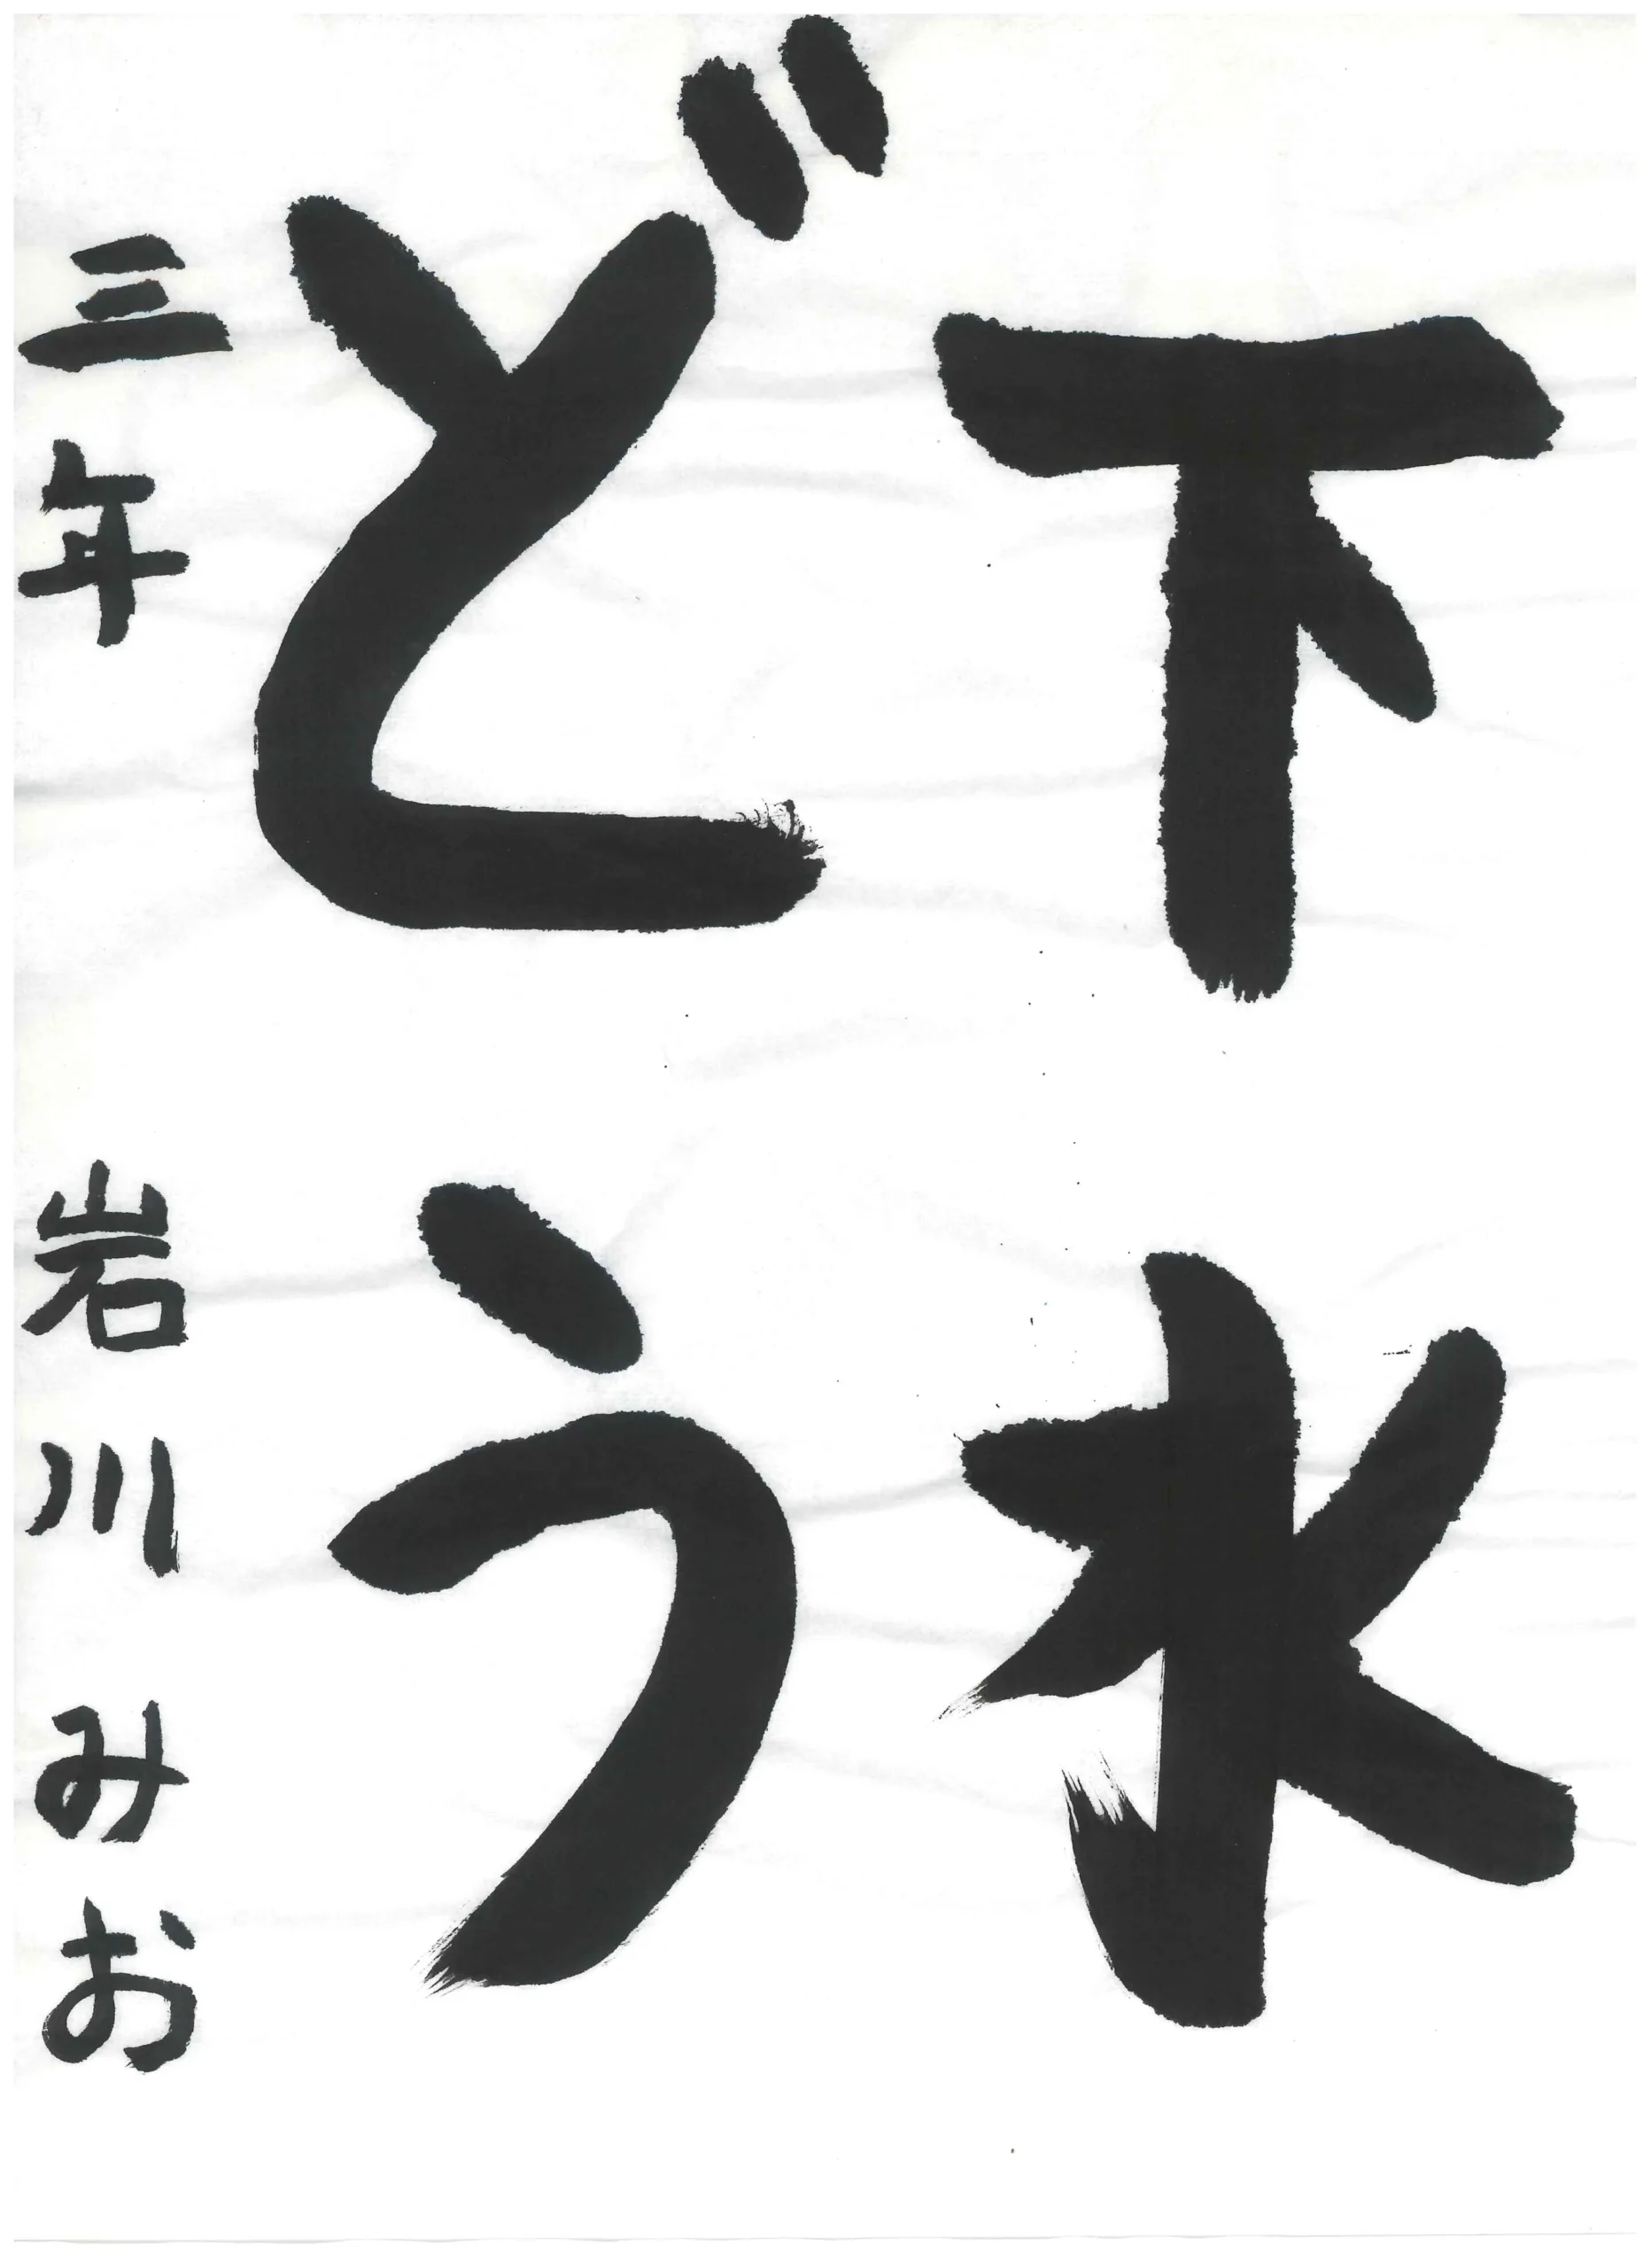 下水
どう
三年 岩川みお